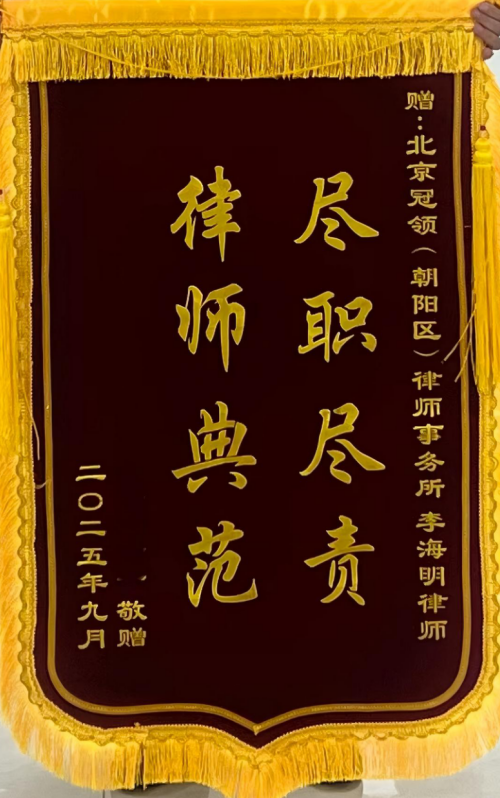 赠：北京冠领（朝阳区）律师事务所 李海明律师
尽职尽责
律师典范
敬赠
二〇二五年九月